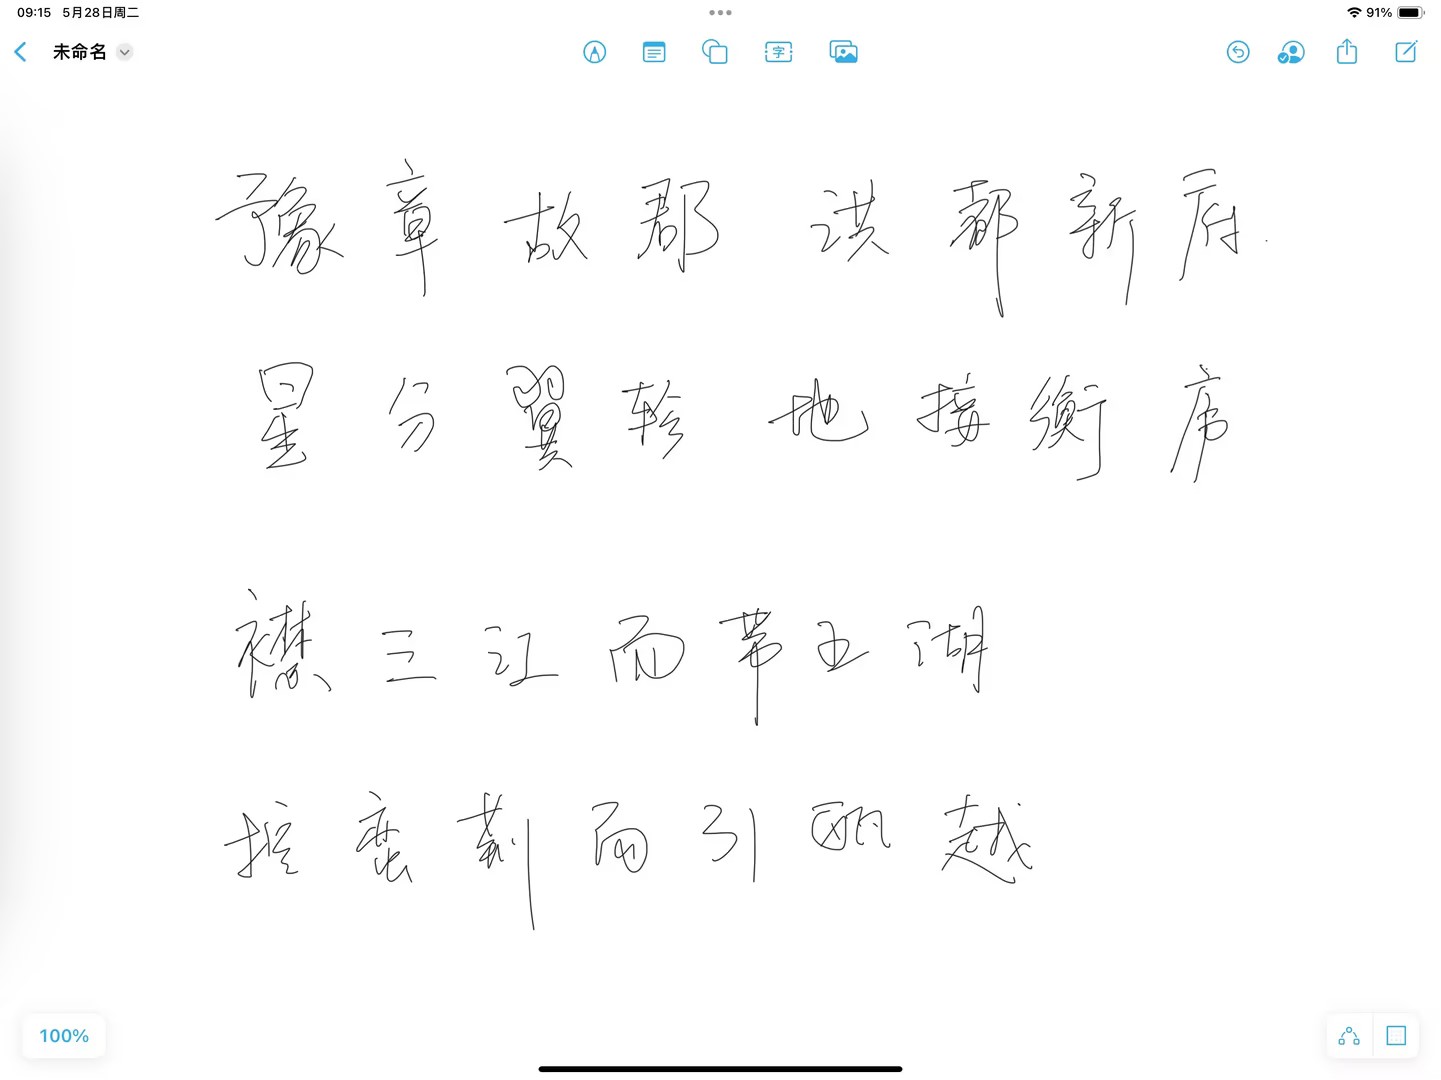 09:15 5月28日周二 91%
未命名 字
豫章故郡 洪都新府.
星分翼轸 地接衡庐
襟三江而带五湖
控蛮荆而引瓯越
100%